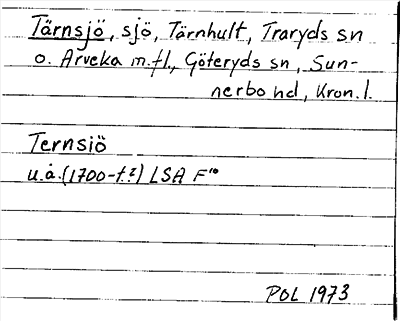 Tärnsjö, sjö, Tärnhult, Traryds sn
o. Arveka m.fl., Göteryds sn, Sun-
nerbo hd, Kron. l.
Ternsiö
u.å. (1700-t.?) LSA F10
POL 1973